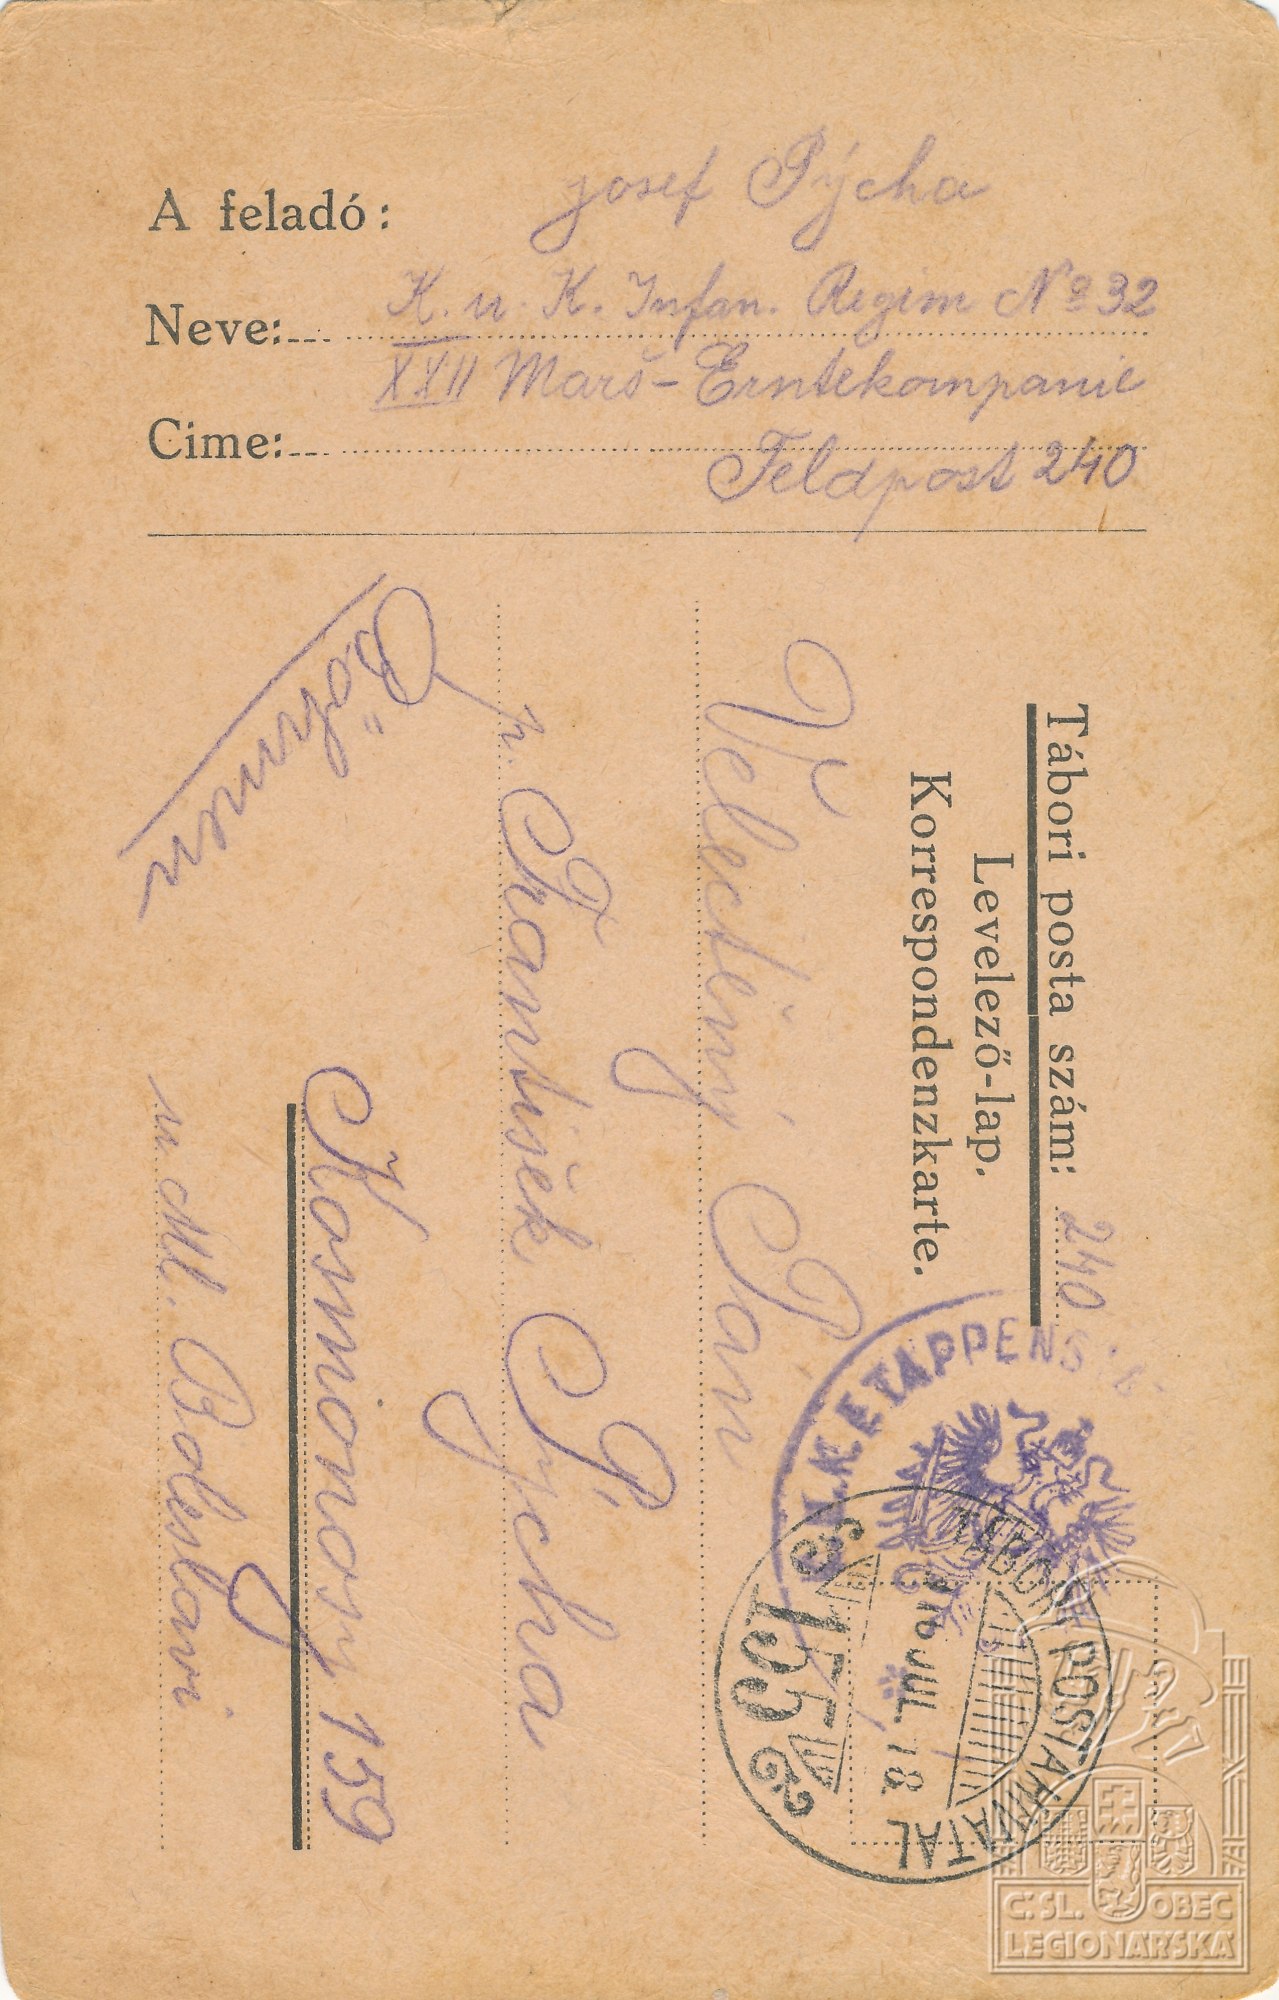 A feladó:
Josef Pýcha
Neve:
K. u. K. Infan. Regim No 32
XXII Marš-Erntekompanie
Cime:
Feldpost 240
Tábori posta szám: 240
Levelező-lap.
Korrespondenzkarte.
Velectěný Pán
p. František Pýcha
Kosmonosy 159
u Ml. Boleslavi
Böhmen
K.u.K. ETAPPENS
TÁBORI POSTAHIVATAL
JUL. 18.
155
Č:SL. OBEC
LEGIONÁŘSKÁ